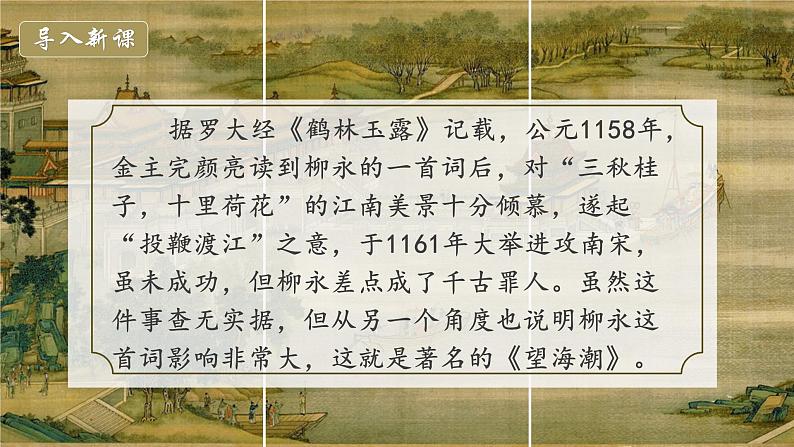 导入新课
据罗大经《鹤林玉露》记载，公元1158年，
金主完颜亮读到柳永的一首词后，对“三秋桂
子，十里荷花”的江南美景十分倾慕，遂起
“投鞭渡江”之意，于1161年大举进攻南宋，
虽未成功，但柳永差点成了千古罪人。虽然这
件事查无实据，但从另一个角度也说明柳永这
首词影响非常大，这就是著名的《望海潮》。